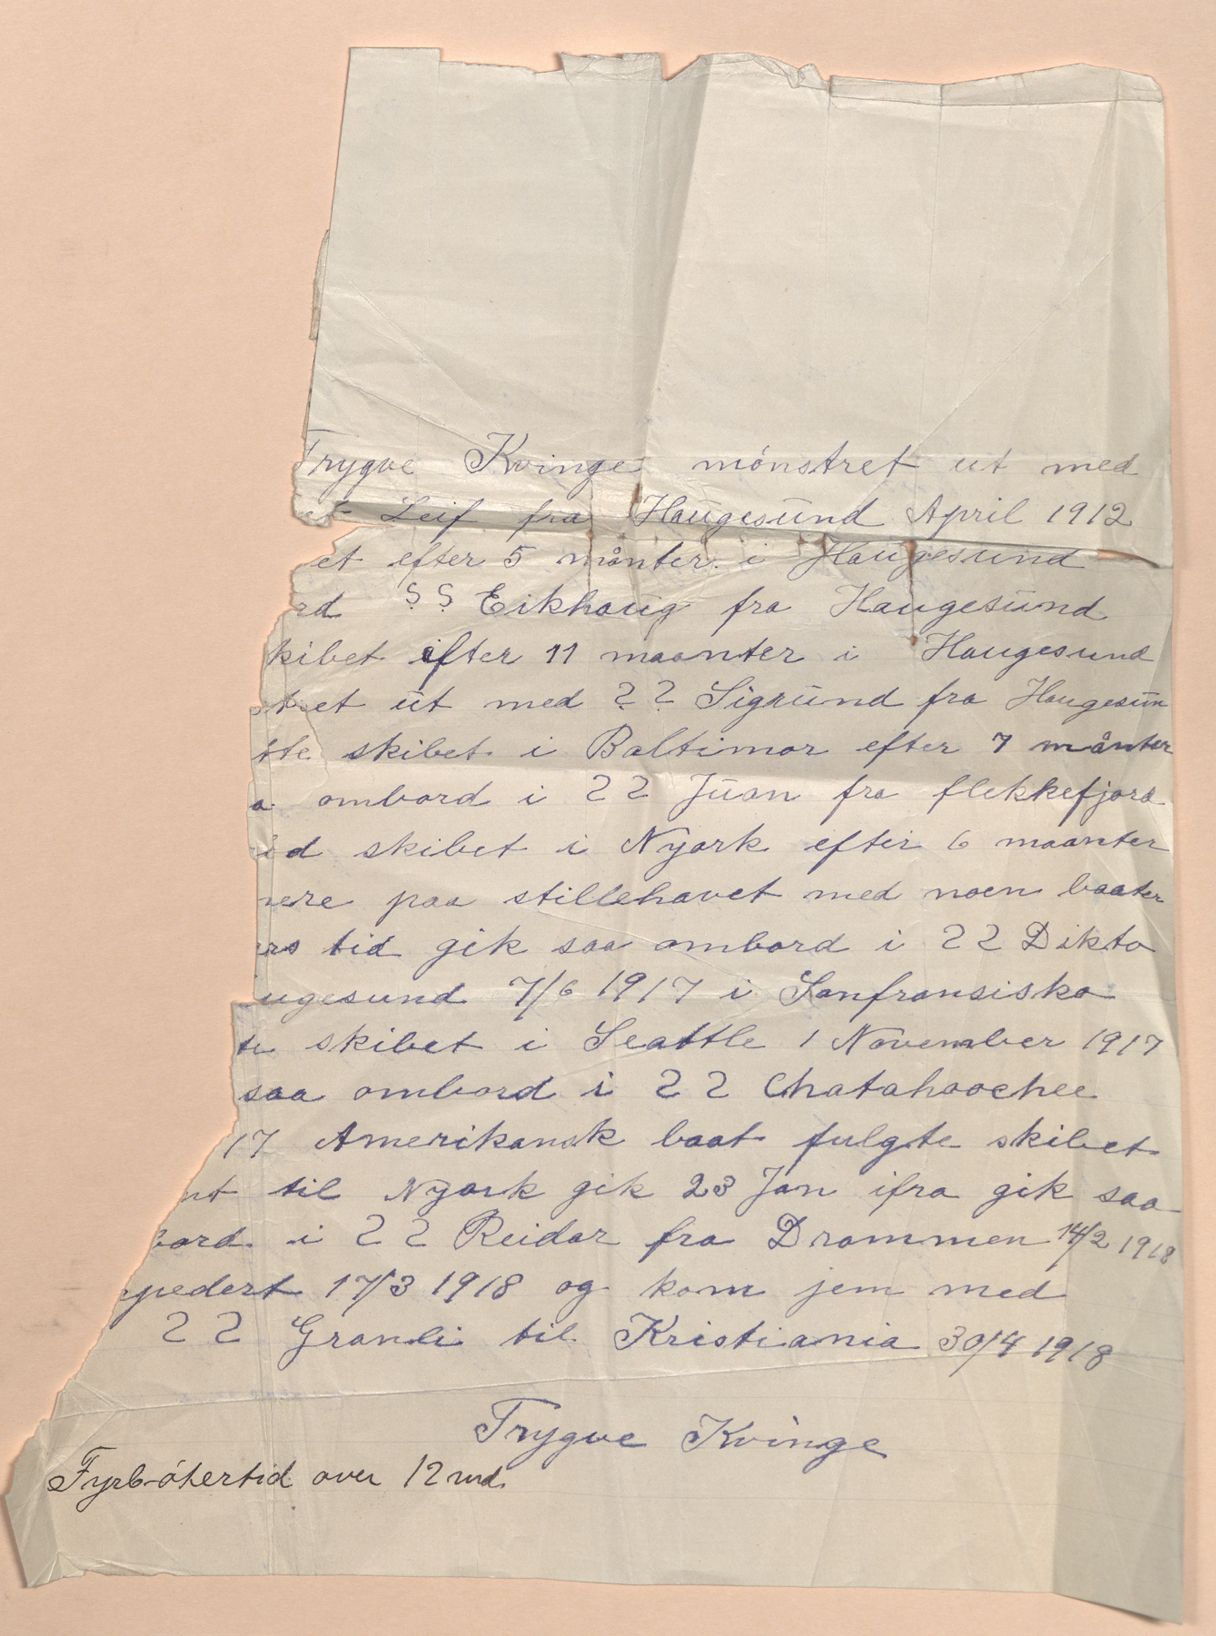 Trygve Kvinge mönstret ut med
Leif fra Haugesund April 1912
et efter 5 månter i Haugesund
rd SS Eikhaug fra Haugesund
kibet efter 11 maanter i Haugesund
tret ut med SS Sigrund fra Haugesun
tte skibet i Baltimor efter 7 månter
a ombord i SS Juan fra flekkefjord
id skibet i Nyork efter 6 maanter
nere paa stillehavet med noen baater
ers tid gik saa ombord i SS Dikto
ugesund 7/6 1917 i Sanfransisko
te skibet i Seattle 1 November 1917
saa ombord i SS Chatahoochee
17 Amerikansk baat fulgte skibet
nt til Nyork gik 23 Jan ifra gik saa
bord i SS Reidar fra Drammen 14/2 1918
rpedert 17/3 1918 og kom jem med
SS Granli til Kristiania 30/4 1918
Trygve Kvinge
Fyrbötertid over 12 md.